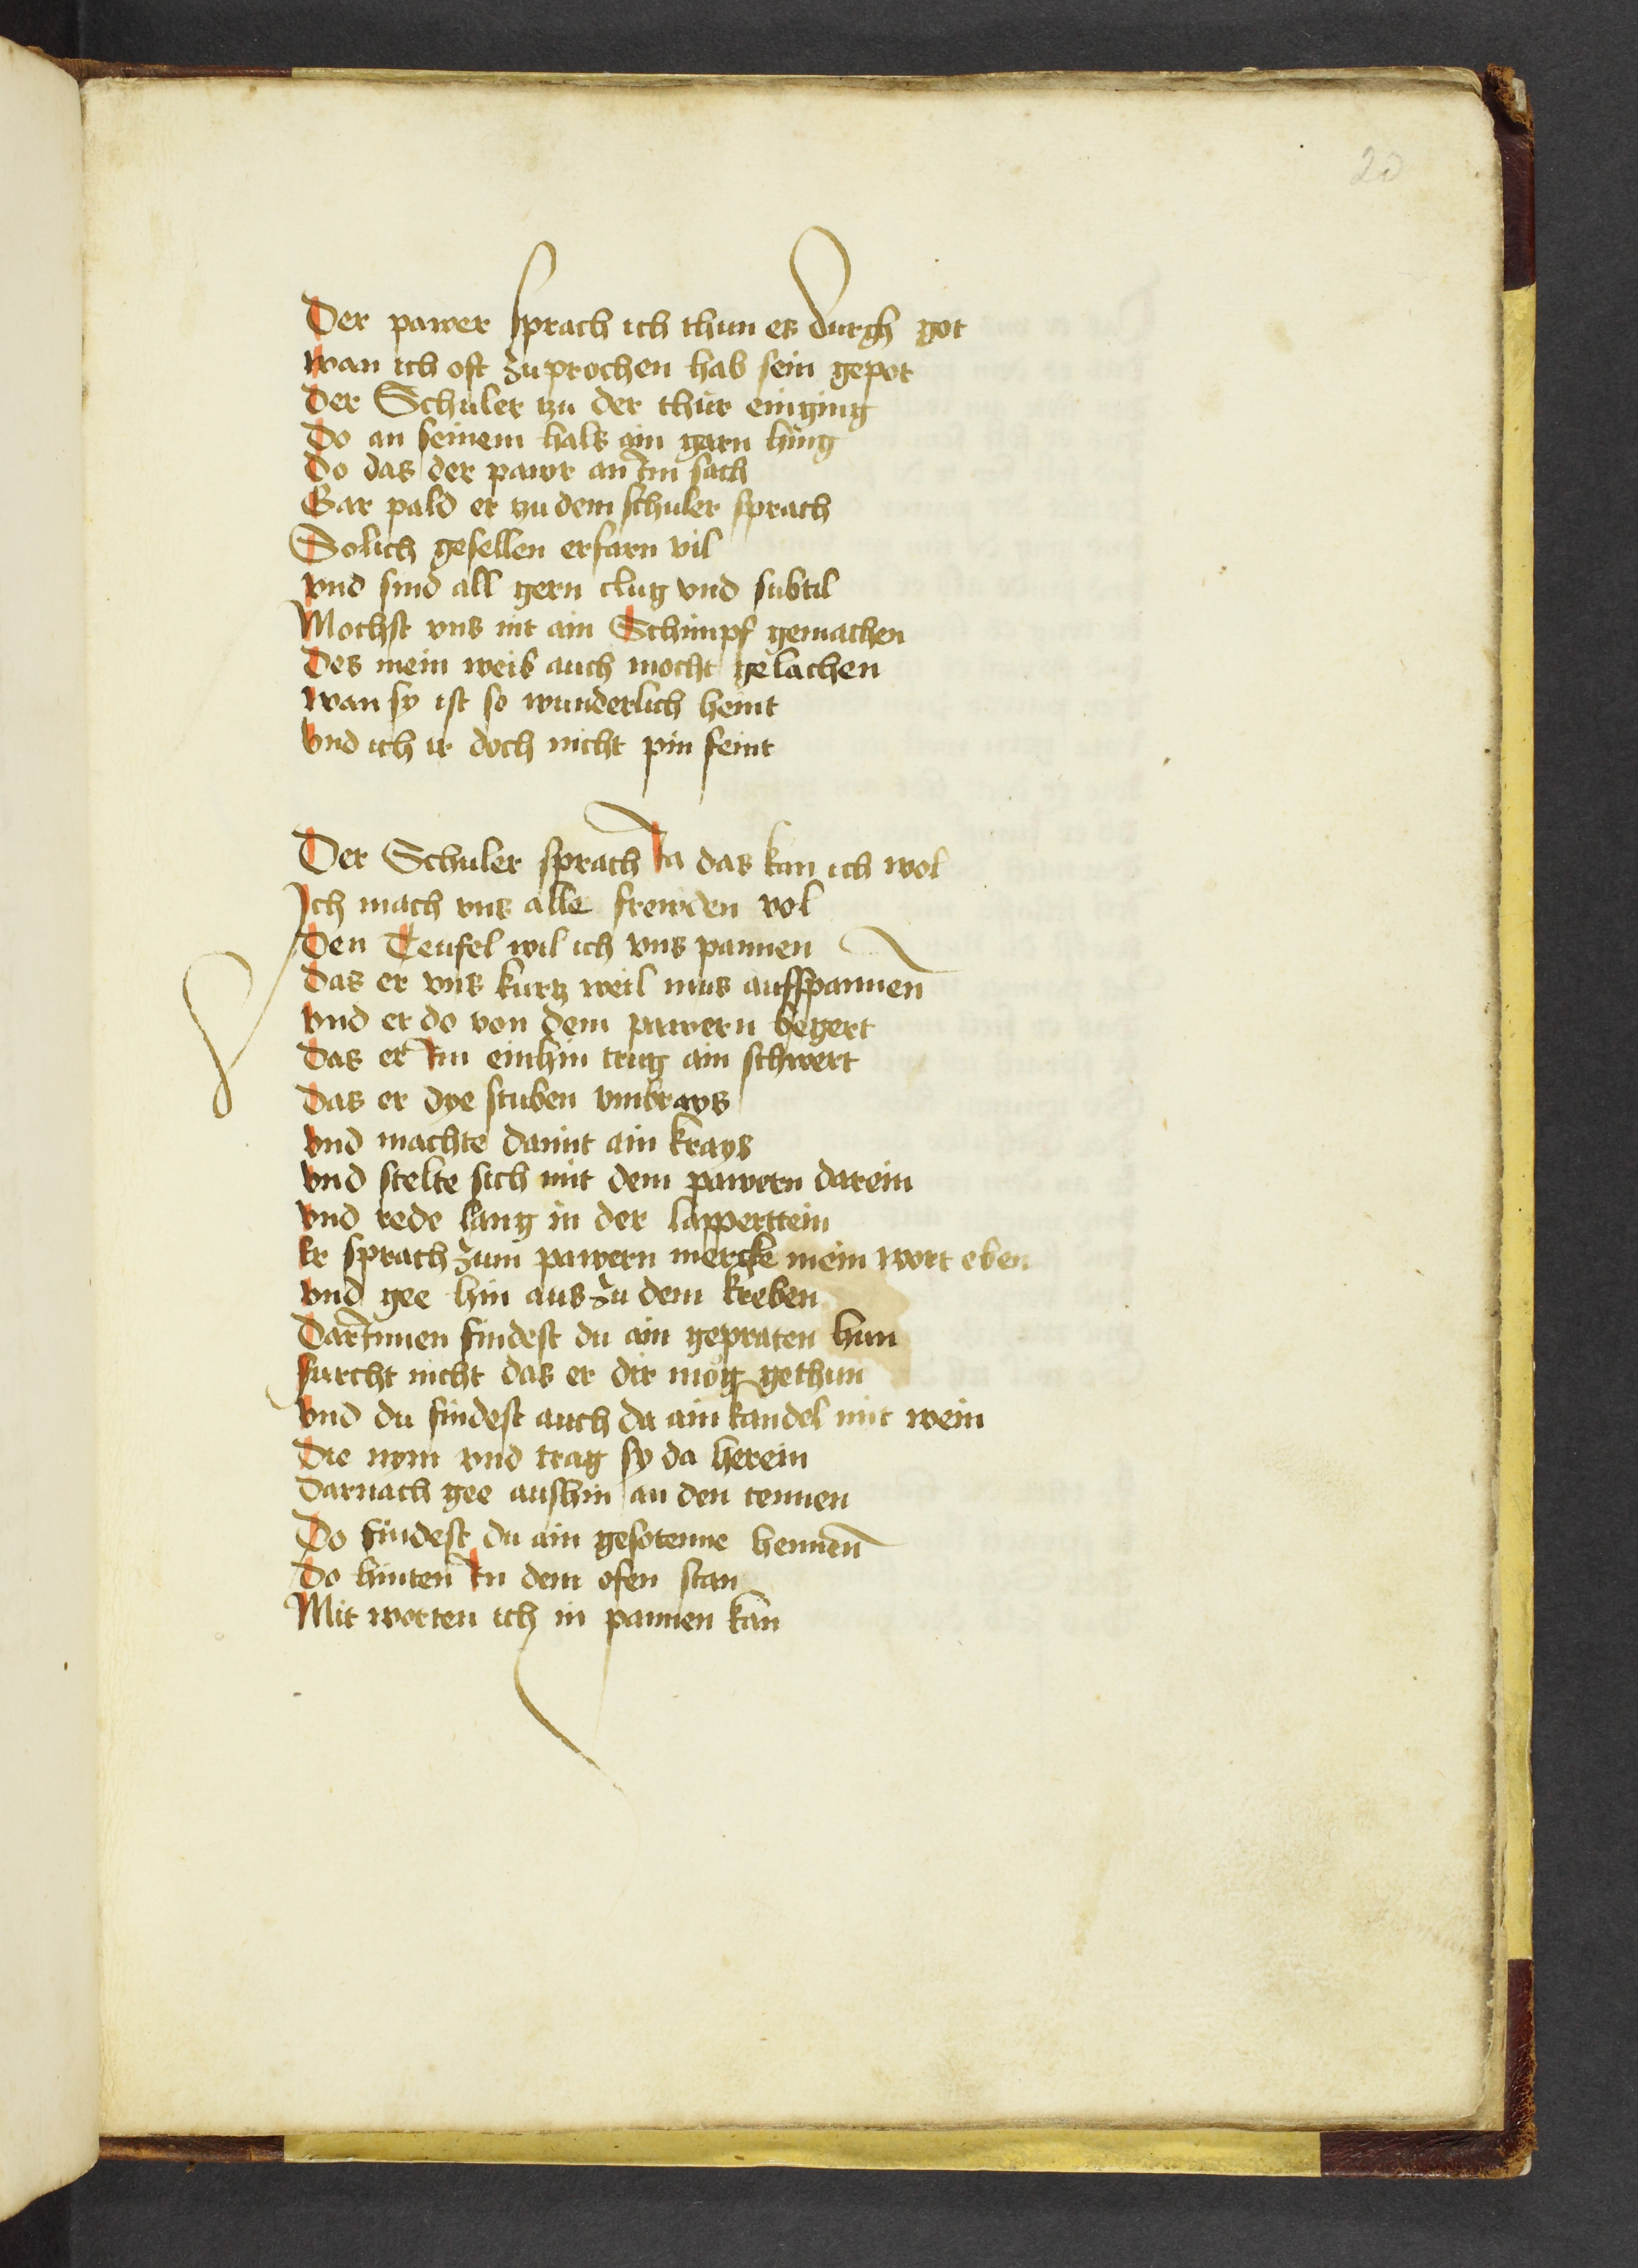 20
Der pawer sprach ich thun es durch got
wan ich oft zuprochen hab sein gepot
Der Schuler tzu der thür einging
Do an seinem hals ain garn hing
Do das der pawr an Im sach
Gar pald er tzu dem schuler sprach
Solich gesellen erfarn vil
vnd sind all gern clug vnd subtil
Mochst vns nit ain Schimpf gemachen
Des mein weib auch mocht gelachen
wan sy ist so wunderlich heint
vnd ich ir doch nicht pin feint
Der Schuler sprach Ja das kan ich wol
Ich mach vns alle frewden vol
Den Teufel wil ich vns pannen
das er vns kurtz weil mus auffspannen
vnd er do von dem pawern begert
das er Im einhin trug ain schwert
das er dye stuben vmbrays
vnd machte damit ain krays
vnd stelte sich mit dem pawern darein
vnd rede lang in der lapperttein
Er sprach zum pawern mercke mein wort eben
vnd gee hin aus zu dem kreben
DarInnen findest du ain gepraten hun
furcht nicht das er dir mög gethun
vnd du findest auch da ain kandel mit wein
die nym vnd trag sy da herein
darnach gee aushin an den tennen
Do findest du ain gesotenne hennen
Do hinten In dem ofen stan
Mit worten ich in pannen kan